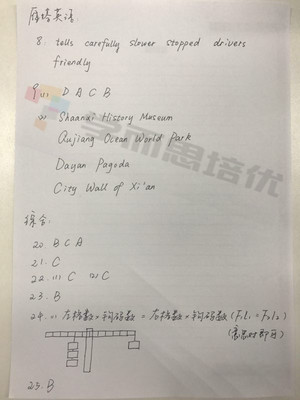 雁塔英语:
8. tells carefully slower stopped drivers
friendly
9. (1) D A C B
(2) Shaanxi History Museum
Qujiang Ocean World Park
Dayan Pagoda
City Wall of Xi'an
学而思培优
综合:
20. B C A
21. C
22. (1) C (2) C
23. B
24. (1) 左格数×钩码数 = 右格数×钩码数 (F₁L₁ = F₂L₂)
25. B